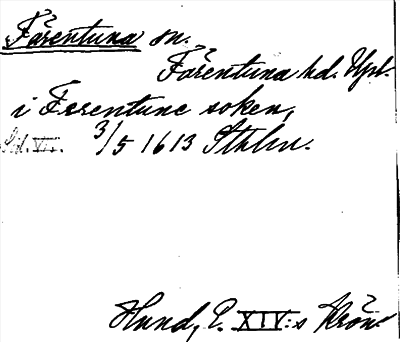 Färentuna sn.
Färentuna hd. Upl.
i Feerentune soken,
3/5 1613 Sthlm.
Hund, E. XIV:s Krön.